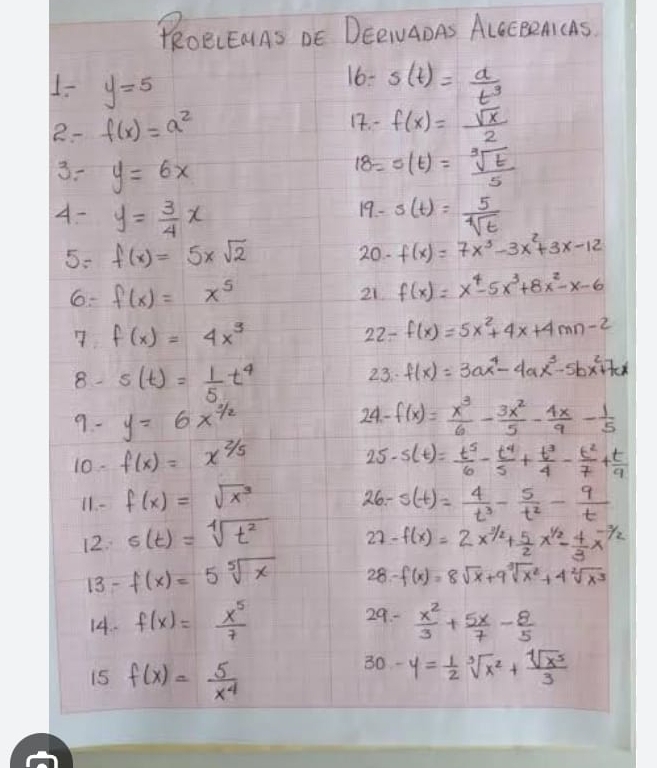 PROBLEMAS DE DERIVADAS ALGEBRAICAS.
1.- y=5
2.- f(x) = a²
3.- y = 6x
4.- y = 3/4 x
5.- f(x) = 5x √2
6.- f(x) = x⁵
7. f(x) = 4x³
8.- s(t) = 1/5 t⁴
9.- y = 6x^3/2
10.- f(x) = x^2/5
11.- f(x) = √x³
12.- s(t) = ⁴√t²
13.- f(x) = 5 ⁵√x
14.- f(x) = x⁵/7
15 f(x) = 5/x⁴
16.- s(t) = a/t³
17.- f(x) = √x/2
18.- s(t) = ³√t/5
19.- s(t) = 5/⁴√t
20.- f(x) = 7x³-3x²+3x-12
21. f(x) = x⁴-5x³+8x²-x-6
22.- f(x) = 5x²+4x+4mn-2
23.- f(x) = 3ax⁴-4ax³-5bx²+7cx
24.- f(x) = x³/6 - 3x²/5 - 4x/9 - 1/5
25.- s(t) = t⁵/6 - t⁴/5 + t³/4 - t²/7 + t/9
26.- s(t) = 4/t³ - 5/t² - 9/t
27.- f(x) = 2x^3/2 + 5/2 x^1/2 - 4/3 x^-3/2
28.- f(x) = 8√x+9³√x²+4
29.- x²/3 + 5x/7 - 8/5
30.- y = 1/2 ³√x² + ⁴√x⁵/3